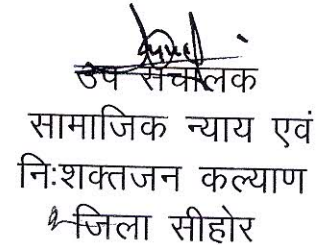 उप संचालक
सामाजिक न्याय एवं
निःशक्तजन कल्याण
जिला सीहोर